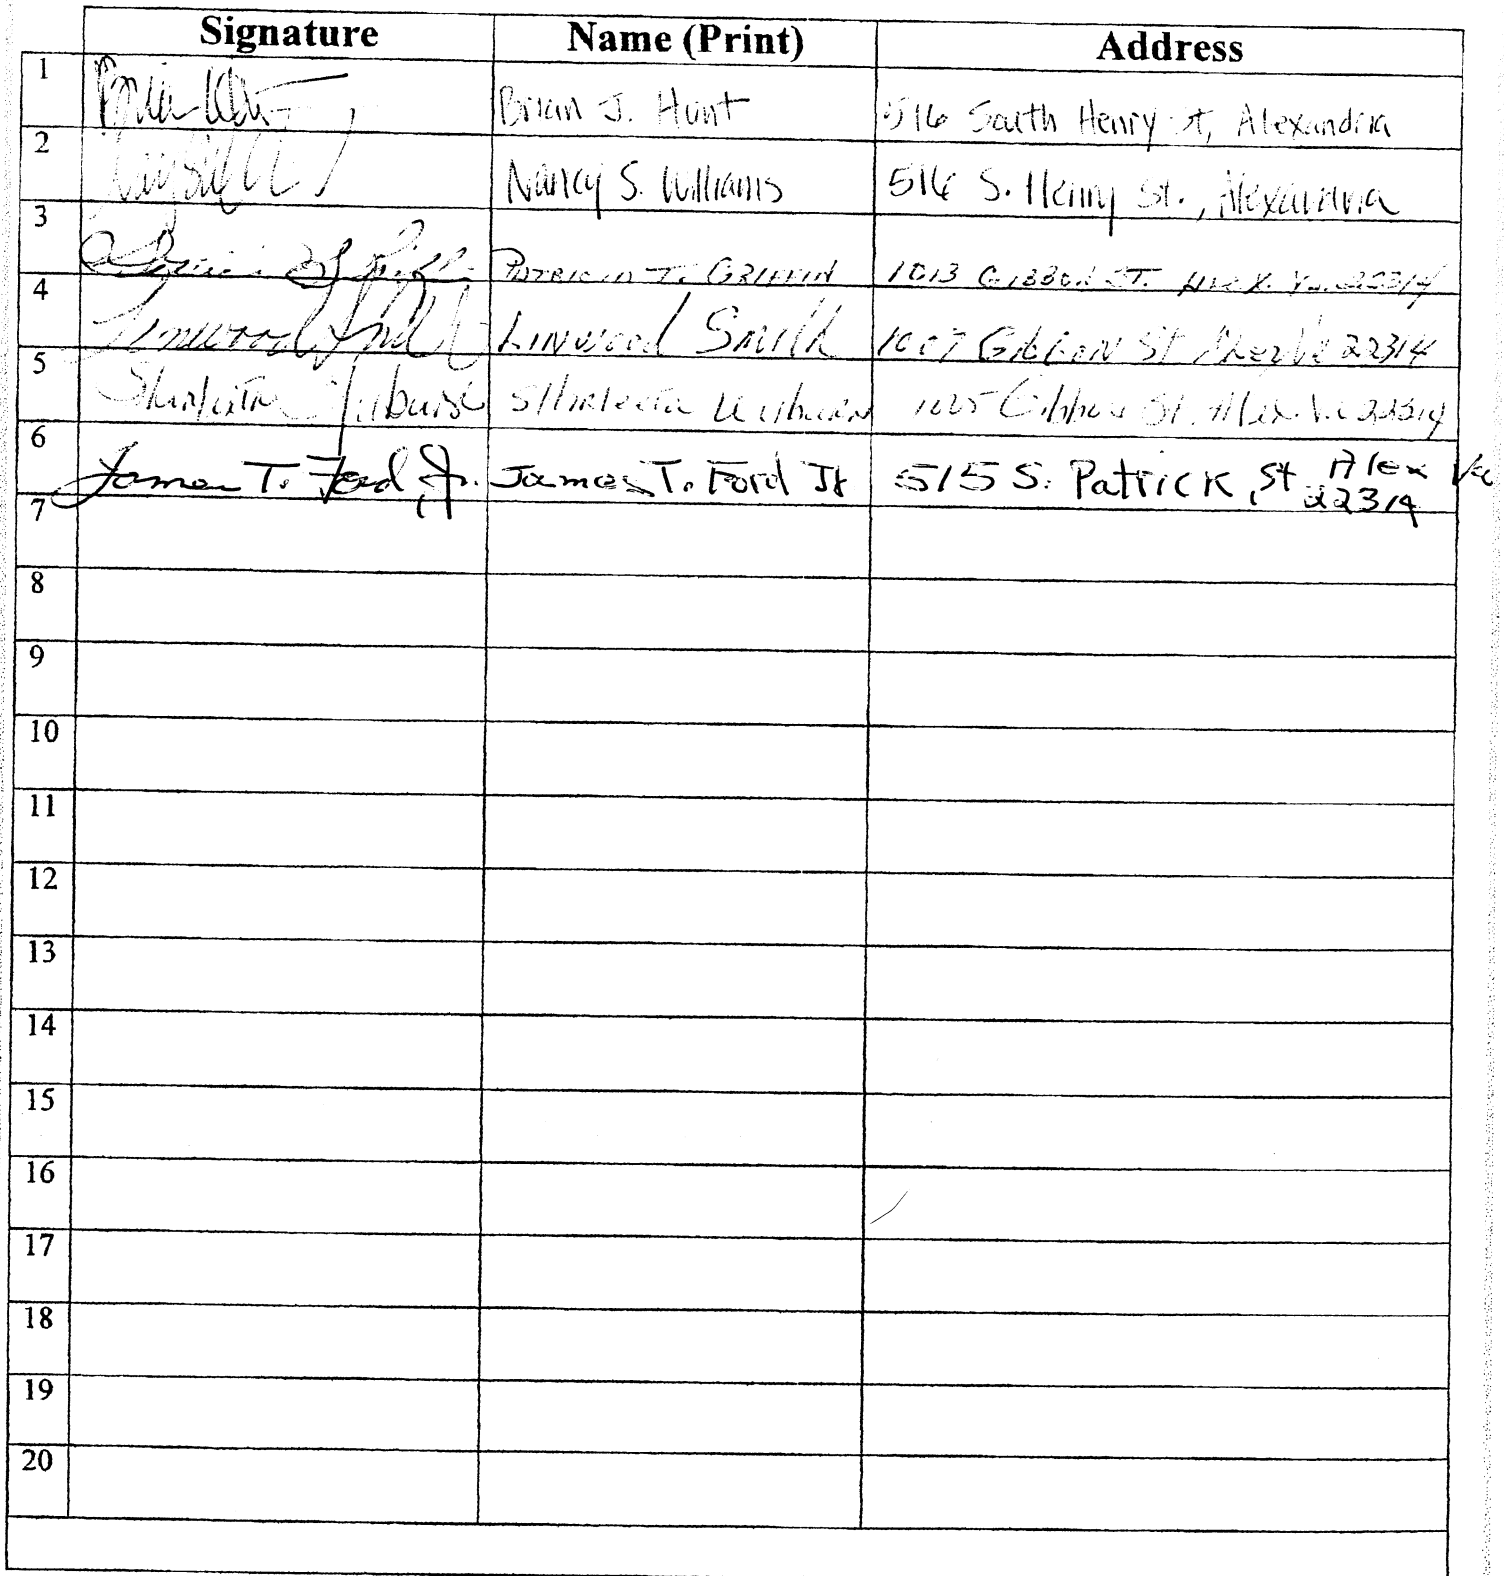 Signature Name (Print) Address
1 Brian J. Hunt 516 South Henry St, Alexandria
2 Nancy S. Williams 516 S. Henry St., Alexandria
3 PATRICIA T. GRIFFIN 1013 GIBBON ST. ALEX. Va. 22314
4 Linwood Smith LINWOOD Smith 1007 GIBBON St Alex Va 22314
5 Wilburn Gibbon St. Alex. Va 22314
6 James T. Ford, Jr. James T. Ford Jr 515 S. Patrick St Alex Va
22314
7
8
9
10
11
12
13
14
15
16
17
18
19
20